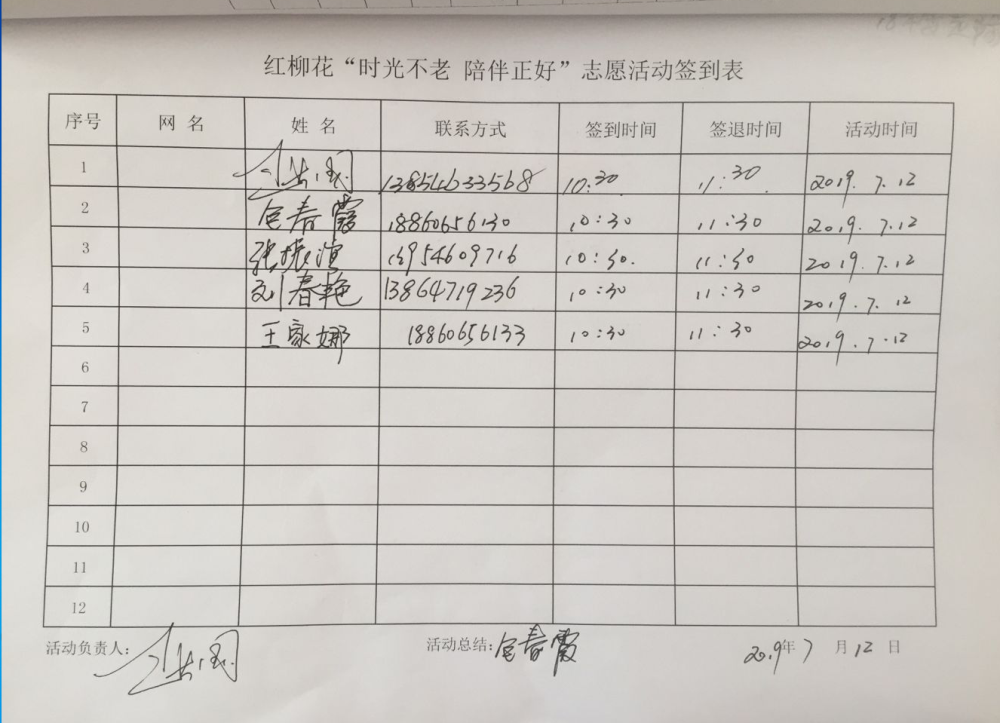 红柳花“时光不老 陪伴正好”志愿活动签到表
序号 网 名 姓 名 联系方式 签到时间 签退时间 活动时间
1 13854633568 10:30 11:30 2019.7.12
2 包春霞 18860656130 10:30 11:30 2019.7.12
3 张振滨 10:30. 11:30 2019.7.12
4 刘春艳 13864719236 10:30 11:30 2019.7.12
5 王家娜 18860656133 10:30 11:30 2019.7.12
6
7
8
9
10
11
12
活动负责人: 活动总结:包春霞 2019年7月12日